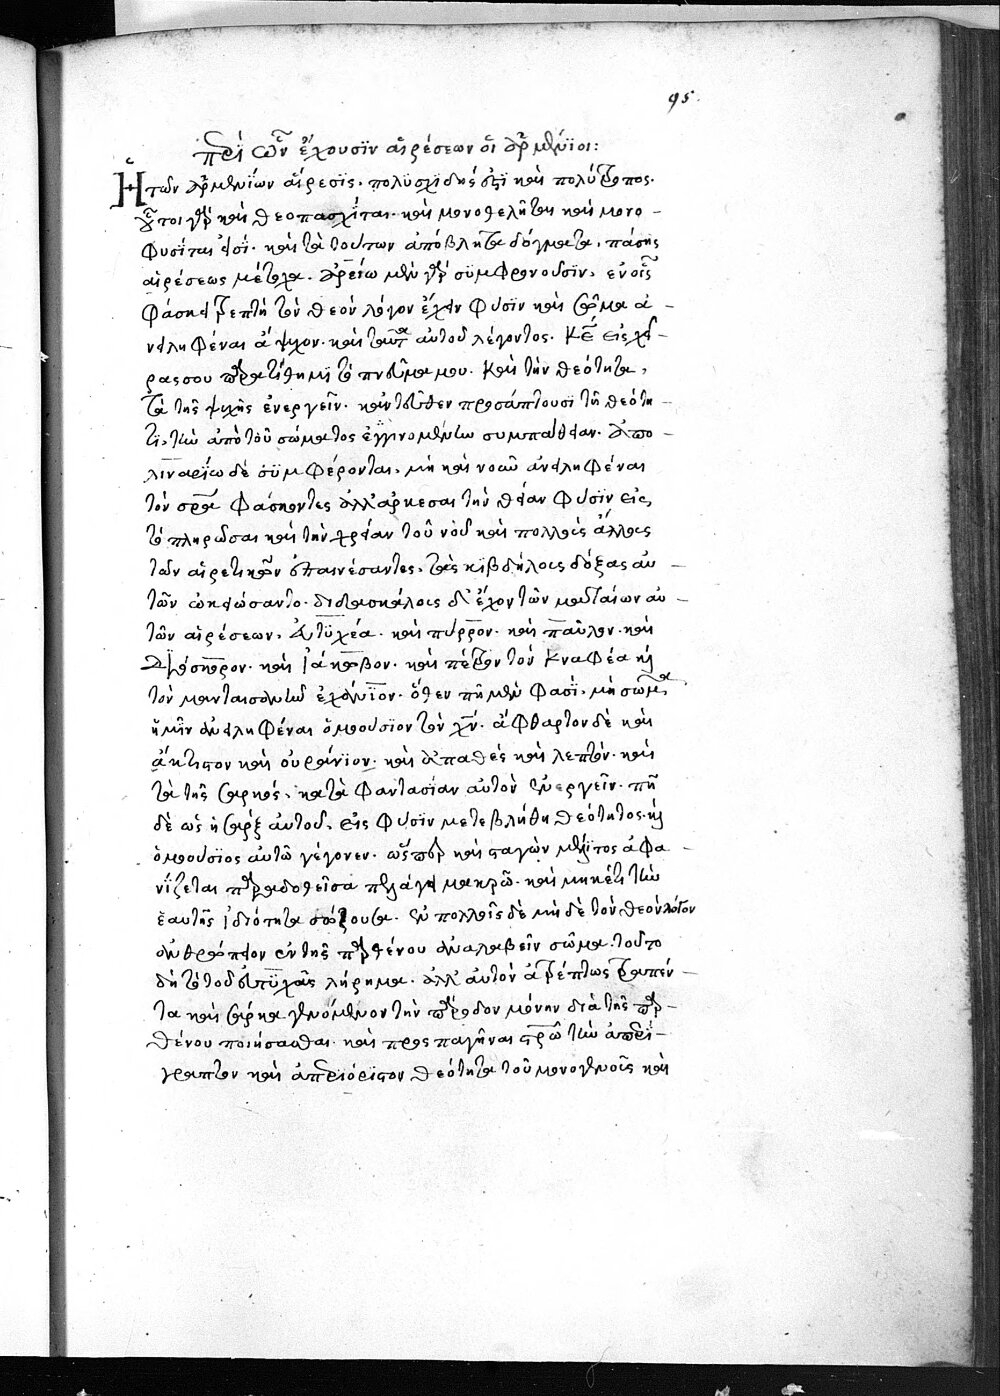 95.
περὶ ὧν ἔχουσϊν αἱρέσεων οἱ ἀρμένϊοι:
Ἡ τῶν ἀρμενΐων αἵρεσϊς, πολϋσχιδής ἐστι καὶ πολύτροπος.
οὗτοι γὰρ καὶ θεοπασχῖται· καὶ μονοθελῆται καὶ μονο-
φυσΐται εἰσΐ· καὶ τὰ τούτων ἀπόβλητα δόγματα, πάσης
αἱρέσεως μέτοχα. ἀρείω μὲν γὰρ συμφρονουσϊν, ἐν οἷς
φάσκει τρεπτὴν τὸν θεὸν λόγον ἔχειν φύσϊν καὶ σῶμα ἀ-
νειληφέναι ἄψυχον· καὶ ταῦτα αὐτοῦ λέγοντος. Κε εἰς χεῖ-
ρας σου παρατίθημι τὸ πνεῦμα μου. Καὶ τὴν θεότητα,
τὰ τῆς ψυχῆς ἐνεργεῖν· κἀντεῦθεν προσάπτουσι τῆ θεότη-
τι, τὴν ἀπὸ τοῦ σώματος ἐγγινομένην συμπάθειαν. ἀπο-
λιναρίω δὲ συμφέρονται, μὴ καὶ νοῦν ἀνειληφέναι
τὸν σρα φάσκοντες ἀλλ' ἀρκεσαι τὴν θείαν φύσϊν εἰς
τὸ πληρῶσαι καὶ τὴν χρείαν τοῦ νοῦ καὶ πολλοῖς ἄλλοις
τῶν αἱρετικῶν ἐπαινέσαντες, τὰς κιβδήλοις δόξας αὐ-
τῶν ὠκειώσαντο. διδασκάλοις δ' ἔχον τῶν ματαίων αὐ-
τῶν αἱρέσεων, εὐτϋχέα. καὶ πύρρον· καὶ παῦλον· καὶ
διόσκορον· καὶ ἰάκωβον· καὶ πέτρον τὸν κναφέα καὶ
τὸν μανταισάνων ἐχάνϊον· ὅθεν πῆ μὲν φασΐ, μὴ σῶμα
ἡμῖν ἀνειληφέναι ὁμοούσϊον τὸν χν· ἄφθαρτον δὲ καὶ
ἄκτιστον καὶ οὐράνϊον· καὶ ἀπαθὲς καὶ λεπτὸν· καὶ
τὰ τῆς σαρκὸς, κατὰ φαντασΐαν αὐτὸν ἐνεργεῖν· πῆ
δὲ ὡς ἡ σὰρξ αὐτοῦ, εἰς φύσϊν μετεβλήθη θεότητος· καὶ
ὁμοούσϊος αὐτῶ γέγονεν· ὥσπερ καὶ σταγὼν μέλιτος ἀφα-
νΐζεται παραδοθεῖσα πελάγει μακρῶ· καὶ μηκέτι τὴν
ἑαυτῆς ἰδιότητα σώζουσα. ἐν πολλοῖς δὲ μὴ δὲ τὸν θεὸν λόγον
ἀνθρώπειον ἐκ τῆς παρθένου ἀναλαβεῖν σῶμα. τοῦτο
δὴ τὸ τοῦ εὐτϋχοῦς λήρημα· ἀλλ' αὐτὸν ἀτρέπτως τραπέν-
τα καὶ σάρκα γενόμενον τὴν πάροδον μόνην διὰ τῆς παρ-
θένου ποιήσασθαι· καὶ προςπαγῆναι στρῶ τὴν ἀπερί-
γραπτον καὶ ἀπεριόριστον θεότητα τοῦ μονογενοῦς καὶ